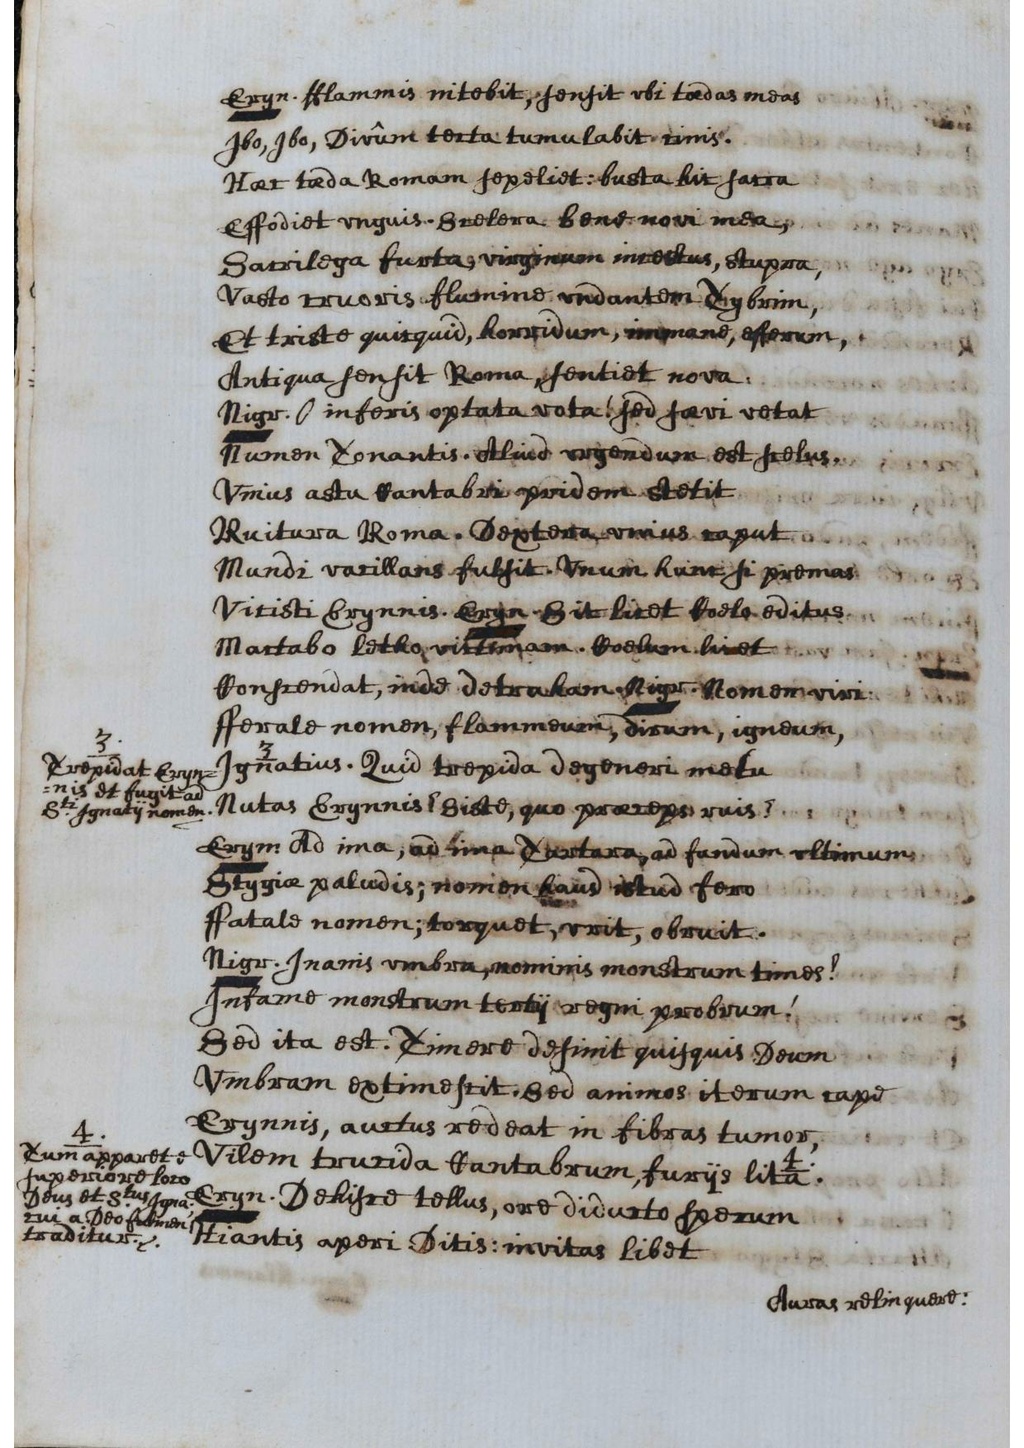 Eryn. fflammis nitebit, sensit vbi tædas meas
Ibo, Ibo, Divûm tecta tumulabit cinis.
Hæc tæda Romam sepeliet: busta hic sacra
Effodiet vnguis. Scelera bene novi mea,
Sacrilega furta, virginum incestus, stupra,
Vasto cruoris flumine vndantem Tybrim,
Et triste quicquid, horridum, immane, efferum,
Antiqua sensit Roma, sentiet nova.
Nigr. O inferis optata vota! sed sævi vetat
Numen Tonantis. Aliud vrgendum est scelus.
Vnius astu Cantabri pridem stetit
Ruitura Roma. Dextera vnius caput
Mundi vacillans fulsit. Vnum hunc si premas
Vicisti Erynnis. Eryn. Sit licet Coelo editus
Mactabo letho victimam. Coelum licet
Conscendat, inde detraham. Nigr. Nomen viri
fferale nomen, flammeum, dirum, igneum,
3.
Trepidat Eryn=
=nis et fugit ad
Sti Ignatij nomen.
3
Ignatius. Quid trepida degeneri metu
Nutas Erynnis? Siste, quo præceps ruis?
Eryn. Ad ima, ad ima Tartara, ad fundum vltimum
Stygiæ paludis; nomen haud istud fero
ffatale nomen; torquet, vrit, obruit.
Nigr. Inanis vmbra, nominis monstrum times!
Infame monstrum tertij regni probrum!
Sed ita est. Timere desinit quisquis Deum
Vmbram extimescit. Sed animos iterum cape
Erynnis, auctus redeat in fibras tumor,
4.
Tum apparet e
superiore loco
Deus et Stus Igna:
cui a Deo fulmen
traditur.
4.
Vilem trucida Cantabrum, furijs lita.
Eryn. Dehisce tellus, ore diducto specum
Hiantis aperi Ditis: invitas libet
Auras relinquere: